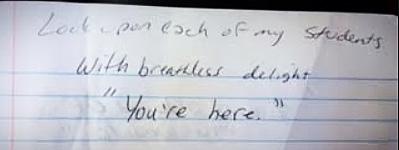 Look upon each of my students
With breathless delight
"You're here."